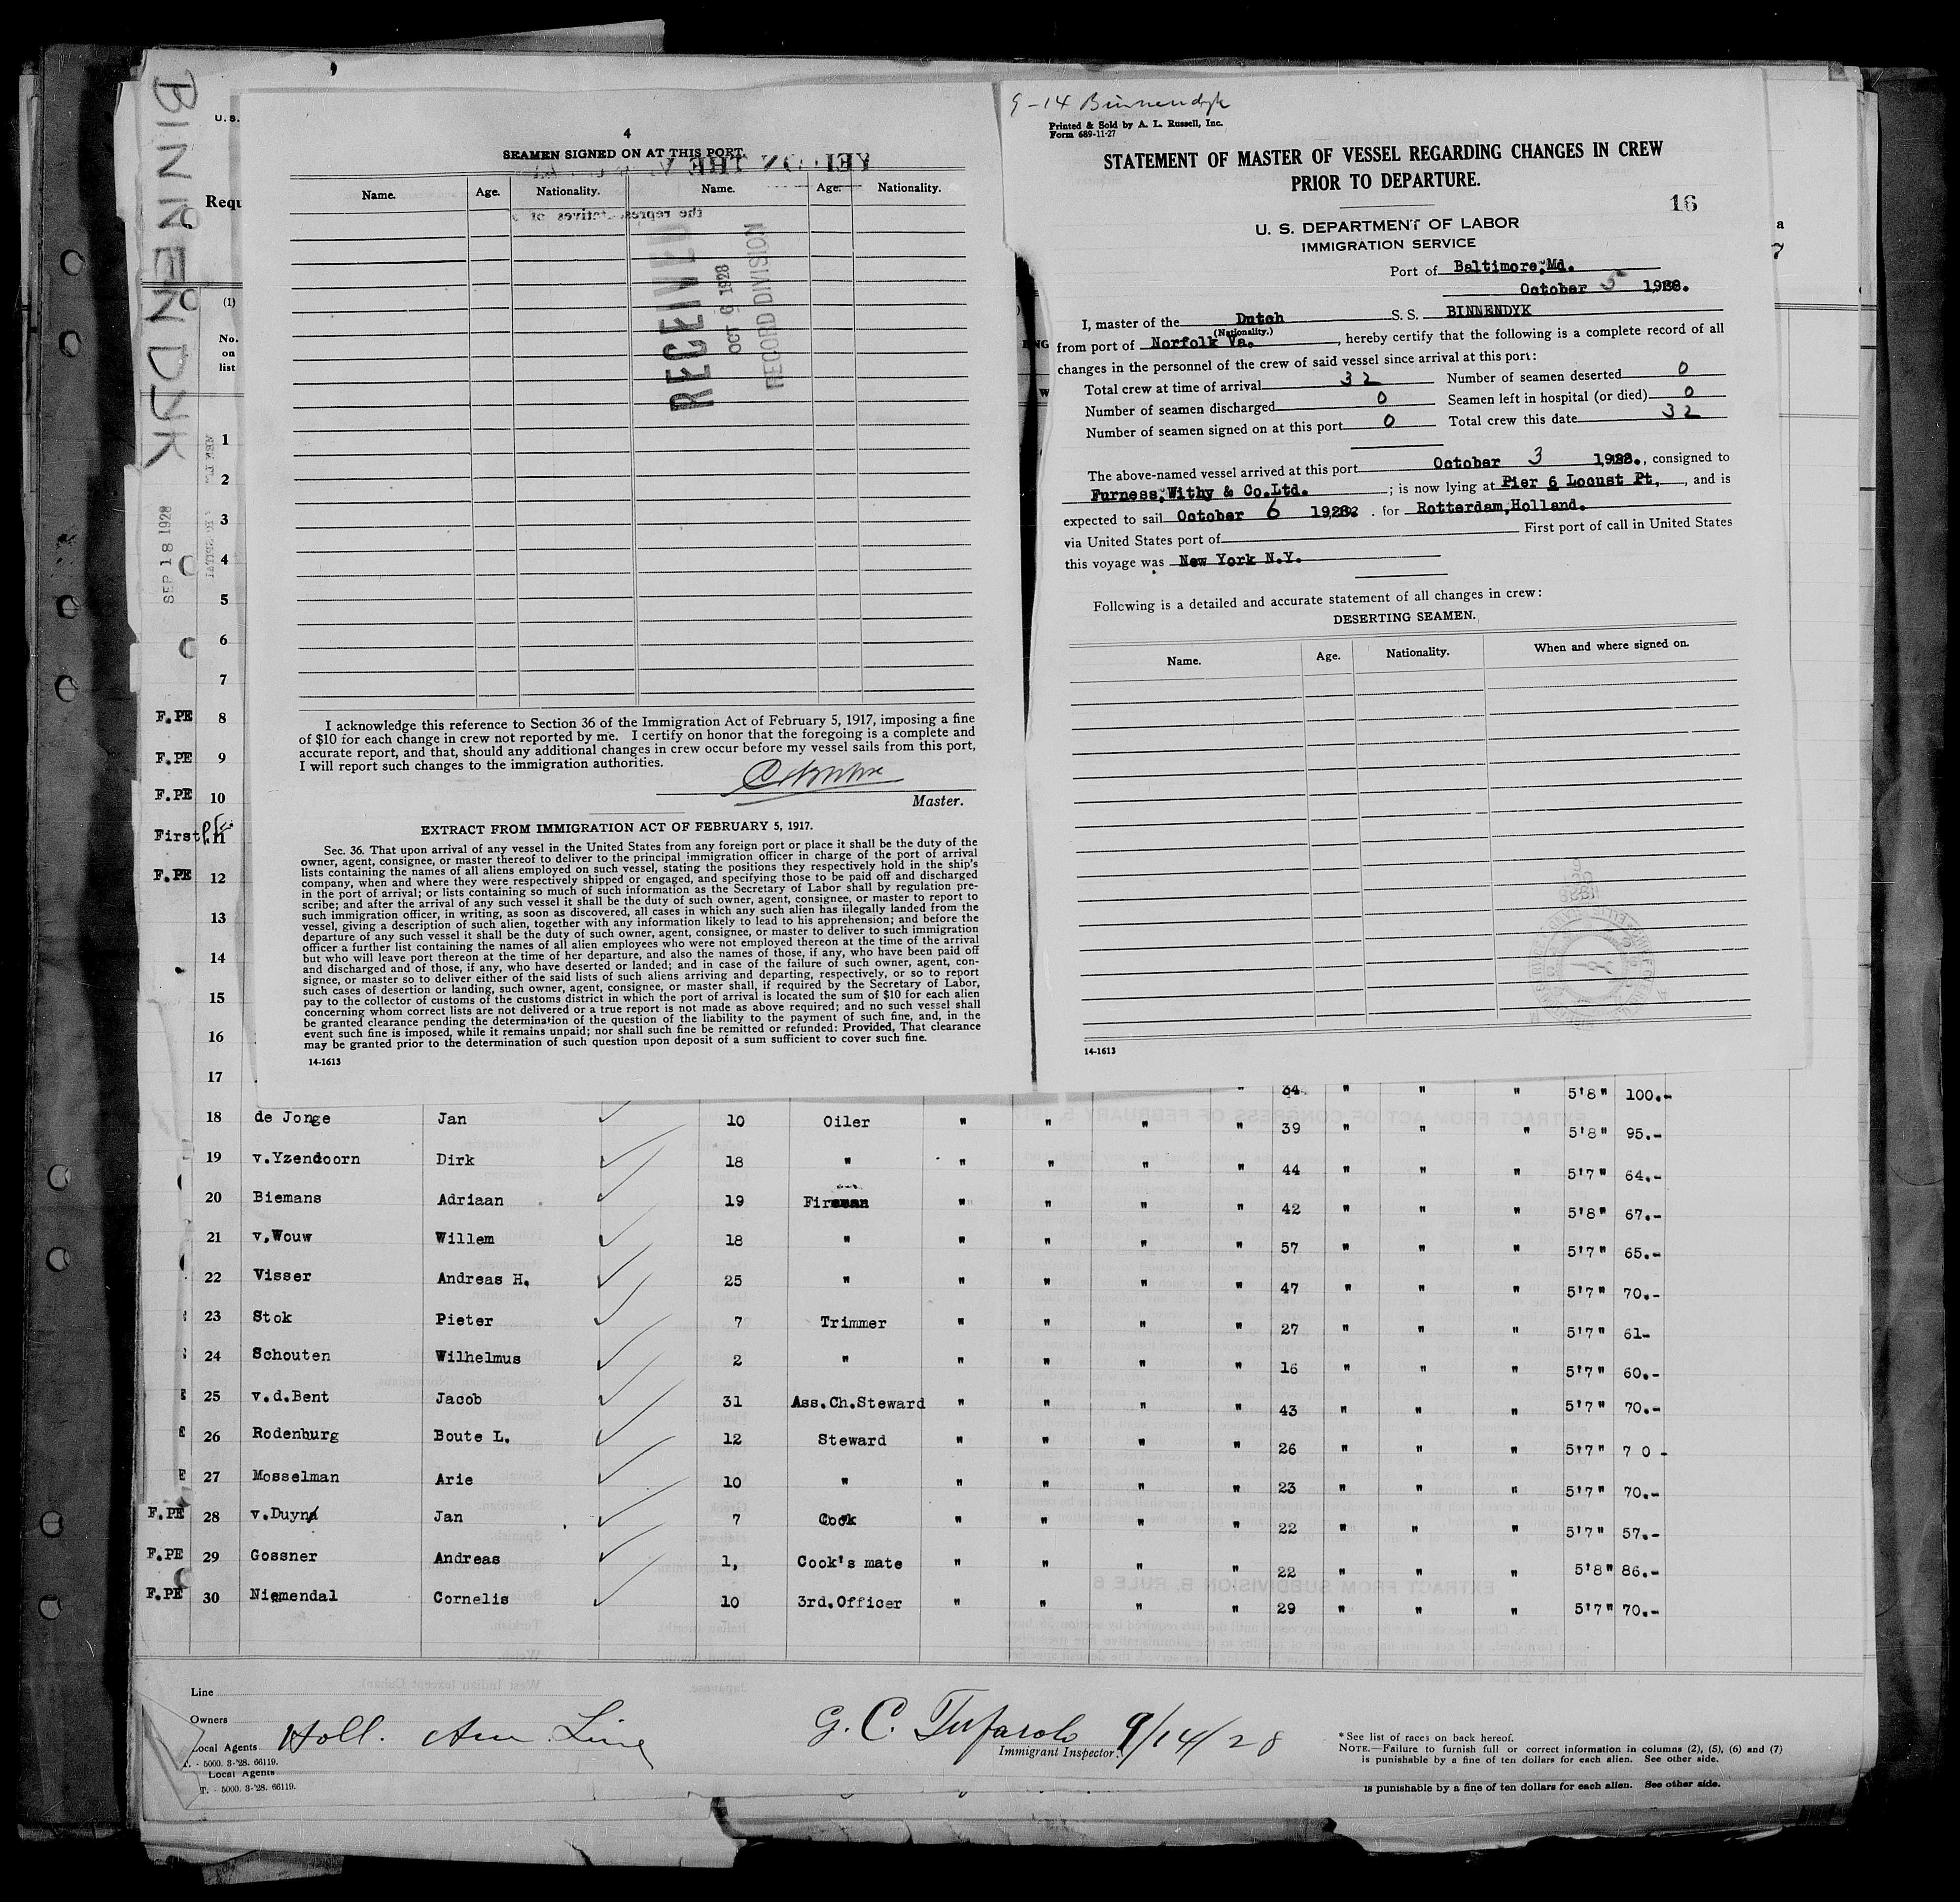 BINNENDYK
SEP 18 1928
U.S.
Requ
(1)
No.
on
list
4
SEAMEN SIGNED ON AT THIS PORT.
Name. Age. Nationality. Name. Age. Nationality.
RECEIVED
OCT 6 1928
RECORD DIVISION
I acknowledge this reference to Section 36 of the Immigration Act of February 5, 1917, imposing a fine
of $10 for each change in crew not reported by me. I certify on honor that the foregoing is a complete and
accurate report, and that, should any additional changes in crew occur before my vessel sails from this port,
I will report such changes to the immigration authorities.
Master.
EXTRACT FROM IMMIGRATION ACT OF FEBRUARY 5, 1917.
Sec. 36. That upon arrival of any vessel in the United States from any foreign port or place it shall be the duty of the
owner, agent, consignee, or master thereof to deliver to the principal immigration officer in charge of the port of arrival
lists containing the names of all aliens employed on such vessel, stating the positions they respectively hold in the ship's
company, when and where they were respectively shipped or engaged, and specifying those to be paid off and discharged
in the port of arrival; or lists containing so much of such information as the Secretary of Labor shall by regulation pre-
scribe; and after the arrival of any such vessel it shall be the duty of such owner, agent, consignee, or master to report to
such immigration officer, in writing, as soon as discovered, all cases in which any such alien has illegally landed from the
vessel, giving a description of such alien, together with any information likely to lead to his apprehension; and before the
departure of any such vessel it shall be the duty of such owner, agent, consignee, or master to deliver to such immigration
officer a further list containing the names of all alien employees who were not employed thereon at the time of the arrival
but who will leave port thereon at the time of her departure, and also the names of those, if any, who have been paid off
and discharged and of those, if any, who have deserted or landed; and in case of the failure of such owner, agent, con-
signee, or master so to deliver either of the said lists of such aliens arriving and departing, respectively, or so to report
such cases of desertion or landing, such owner, agent, consignee, or master shall, if required by the Secretary of Labor,
pay to the collector of customs of the customs district in which the port of arrival is located the sum of $10 for each alien
concerning whom correct lists are not delivered or a true report is not made as above required; and no such vessel shall
be granted clearance pending the determination of the question of the liability to the payment of such fine, and, in the
event such fine is imposed, while it remains unpaid; nor shall such fine be remitted or refunded: Provided, That clearance
may be granted prior to the determination of such question upon deposit of a sum sufficient to cover such fine.
14-1613
9-14 Binnendyk
Printed & Sold by A. L. Russell, Inc.
Form 689-11-27
STATEMENT OF MASTER OF VESSEL REGARDING CHANGES IN CREW
PRIOR TO DEPARTURE.
16
U. S. DEPARTMENT OF LABOR
IMMIGRATION SERVICE
Port of Baltimore,Md.
October 5 1928.
I, master of the Dutch S. S. BINNENDYK
(Nationality.)
from port of Norfolk Va. , hereby certify that the following is a complete record of all
changes in the personnel of the crew of said vessel since arrival at this port:
Total crew at time of arrival 32 Number of seamen deserted 0
Number of seamen discharged 0 Seamen left in hospital (or died) 0
Number of seamen signed on at this port 0 Total crew this date 32
The above-named vessel arrived at this port October 3 1928., consigned to
Furness,Withy & Co.Ltd. ; is now lying at Pier 6 Locust Pt. , and is
expected to sail October 6 1928 . for Rotterdam,Holland.
via United States port of First port of call in United States
this voyage was New York N.Y.
Following is a detailed and accurate statement of all changes in crew:
DESERTING SEAMEN.
Name. Age. Nationality. When and where signed on.
14-1613
1
2
3
4
5
6
7
F.PE 8
F.PE 9
F.PE 10
First 11
F.PE 12
13
14
15
16
17 " 34 " " " 5'8" 100.-
18 de Jonge Jan 10 Oiler " " " " 39 " " " 5'8" 95.-
19 v.Yzendoorn Dirk 18 " " " " " 44 " " " 5'7" 64.-
20 Biemans Adriaan 19 Fireman " " " " 42 " " " 5'8" 67.-
21 v.Wouw Willem 18 " " " " " 57 " " " 5'7" 65.-
22 Visser Andreas H. 25 " " " " " 47 " " " 5'7" 70.-
23 Stok Pieter 7 Trimmer " " " " 27 " " " 5'7" 61-
24 Schouten Wilhelmus 2 " " " " " 16 " " " 5'7" 60.-
25 v.d.Bent Jacob 31 Ass.Ch.Steward " " " " 43 " " " 5'7" 70.-
26 Rodenburg Boute L. 12 Steward " " " " 26 " " " 5'7" 7 0 -
27 Mosselman Arie 10 " " " " " 23 " " " 5'7" 70.-
F.PE 28 v.Duyn Jan 7 Cook " " " " 22 " " " 5'7" 57.-
F.PE 29 Gossner Andreas 1, Cook's mate " " " " 22 " " " 5'8" 86.-
F.PE 30 Niemendal Cornelis 10 3rd.Officer " " " " 29 " " " 5'7" 70.-
Line
Owners
Local Agents Holl. Am Line
T. - 5000. 3-'28. 66119.
Local Agents
T. - 5000. 3-'28. 66119.
G. C. Tufarolo 9/14/28
Immigrant Inspector.
* See list of races on back hereof.
NOTE.—Failure to furnish full or correct information in columns (2), (5), (6) and (7)
is punishable by a fine of ten dollars for each alien. See other side.
is punishable by a fine of ten dollars for each alien. See other side.